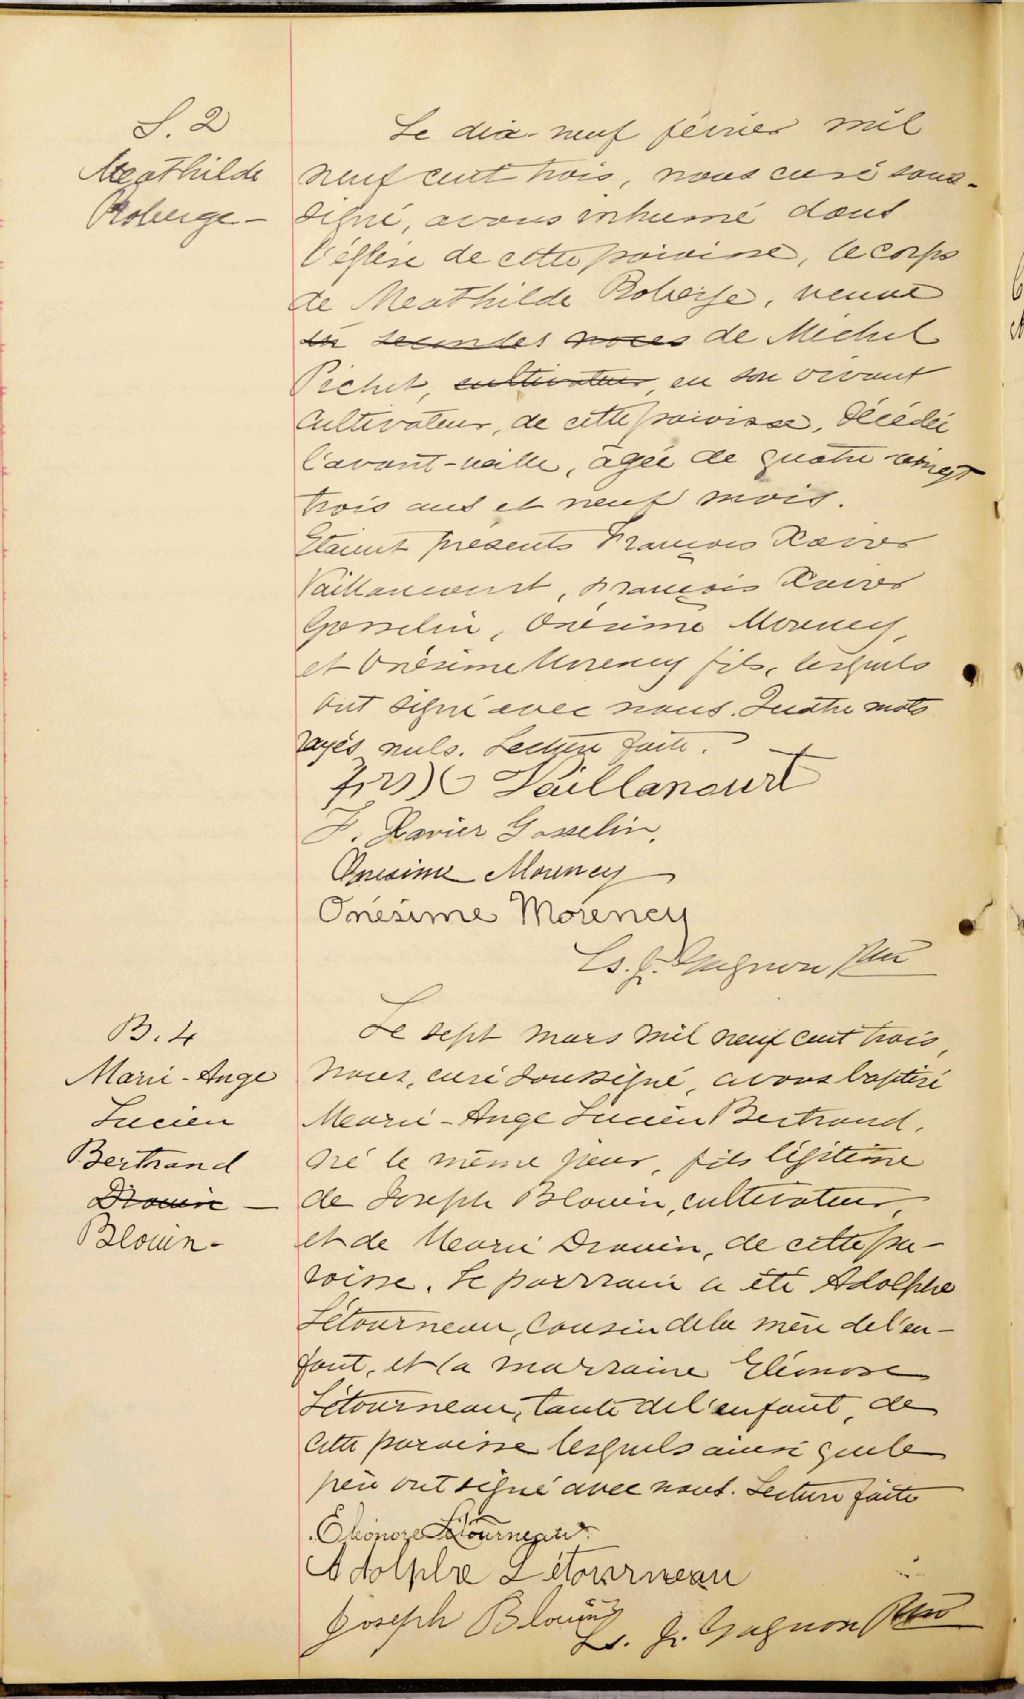 S. 2
Mathilde
Roberge -
Le dix-neuf février mil
neuf cent trois, nous curé sous-
signé, avons inhumé dans
l'église de cette paroisse, le corps
de Mathilde Roberge, veuve
en secondes noces de Michel
Pichet, cultivateur, en son vivant
cultivateur, de cette paroisse, décédée
l'avant-veille, âgée de quatre vingt
trois ans et neuf mois.
Etaient présents François Xavier
Vaillancourt, François Xavier
Gosselin, Onésime Morency,
et Onésime Morency fils, lesquels
ont signé avec nous. Quatre mots
rayés nuls. Lecture faite.
Frs X Vaillancourt
F. Xavier Gosselin,
Onésime Morency
Onésime Morency
Ls. J. Gagnon Ptre
B. 4
Marie-Ange
Lucien
Bertrand
Drouin -
Blouin -
Le sept mars mil neuf cent trois,
nous, curé soussigné, avons baptisé
Marie-Ange Lucien Bertrand,
né le même jour, fils légitime
de Joseph Blouin, cultivateur,
et de Marie Drouin, de cette pa-
roisse. Le parrain a été Adolphe
Létourneau, cousin de la mère de l'en-
fant, et la marraine Eléonore
Létourneau, tante de l'enfant, de
cette paroisse lesquels ainsi que le
père ont signé avec nous. Lecture faite
Eléonore Létourneau
Adolphe Létourneau
Joseph Blouin
Ls. J. Gagnon Ptre